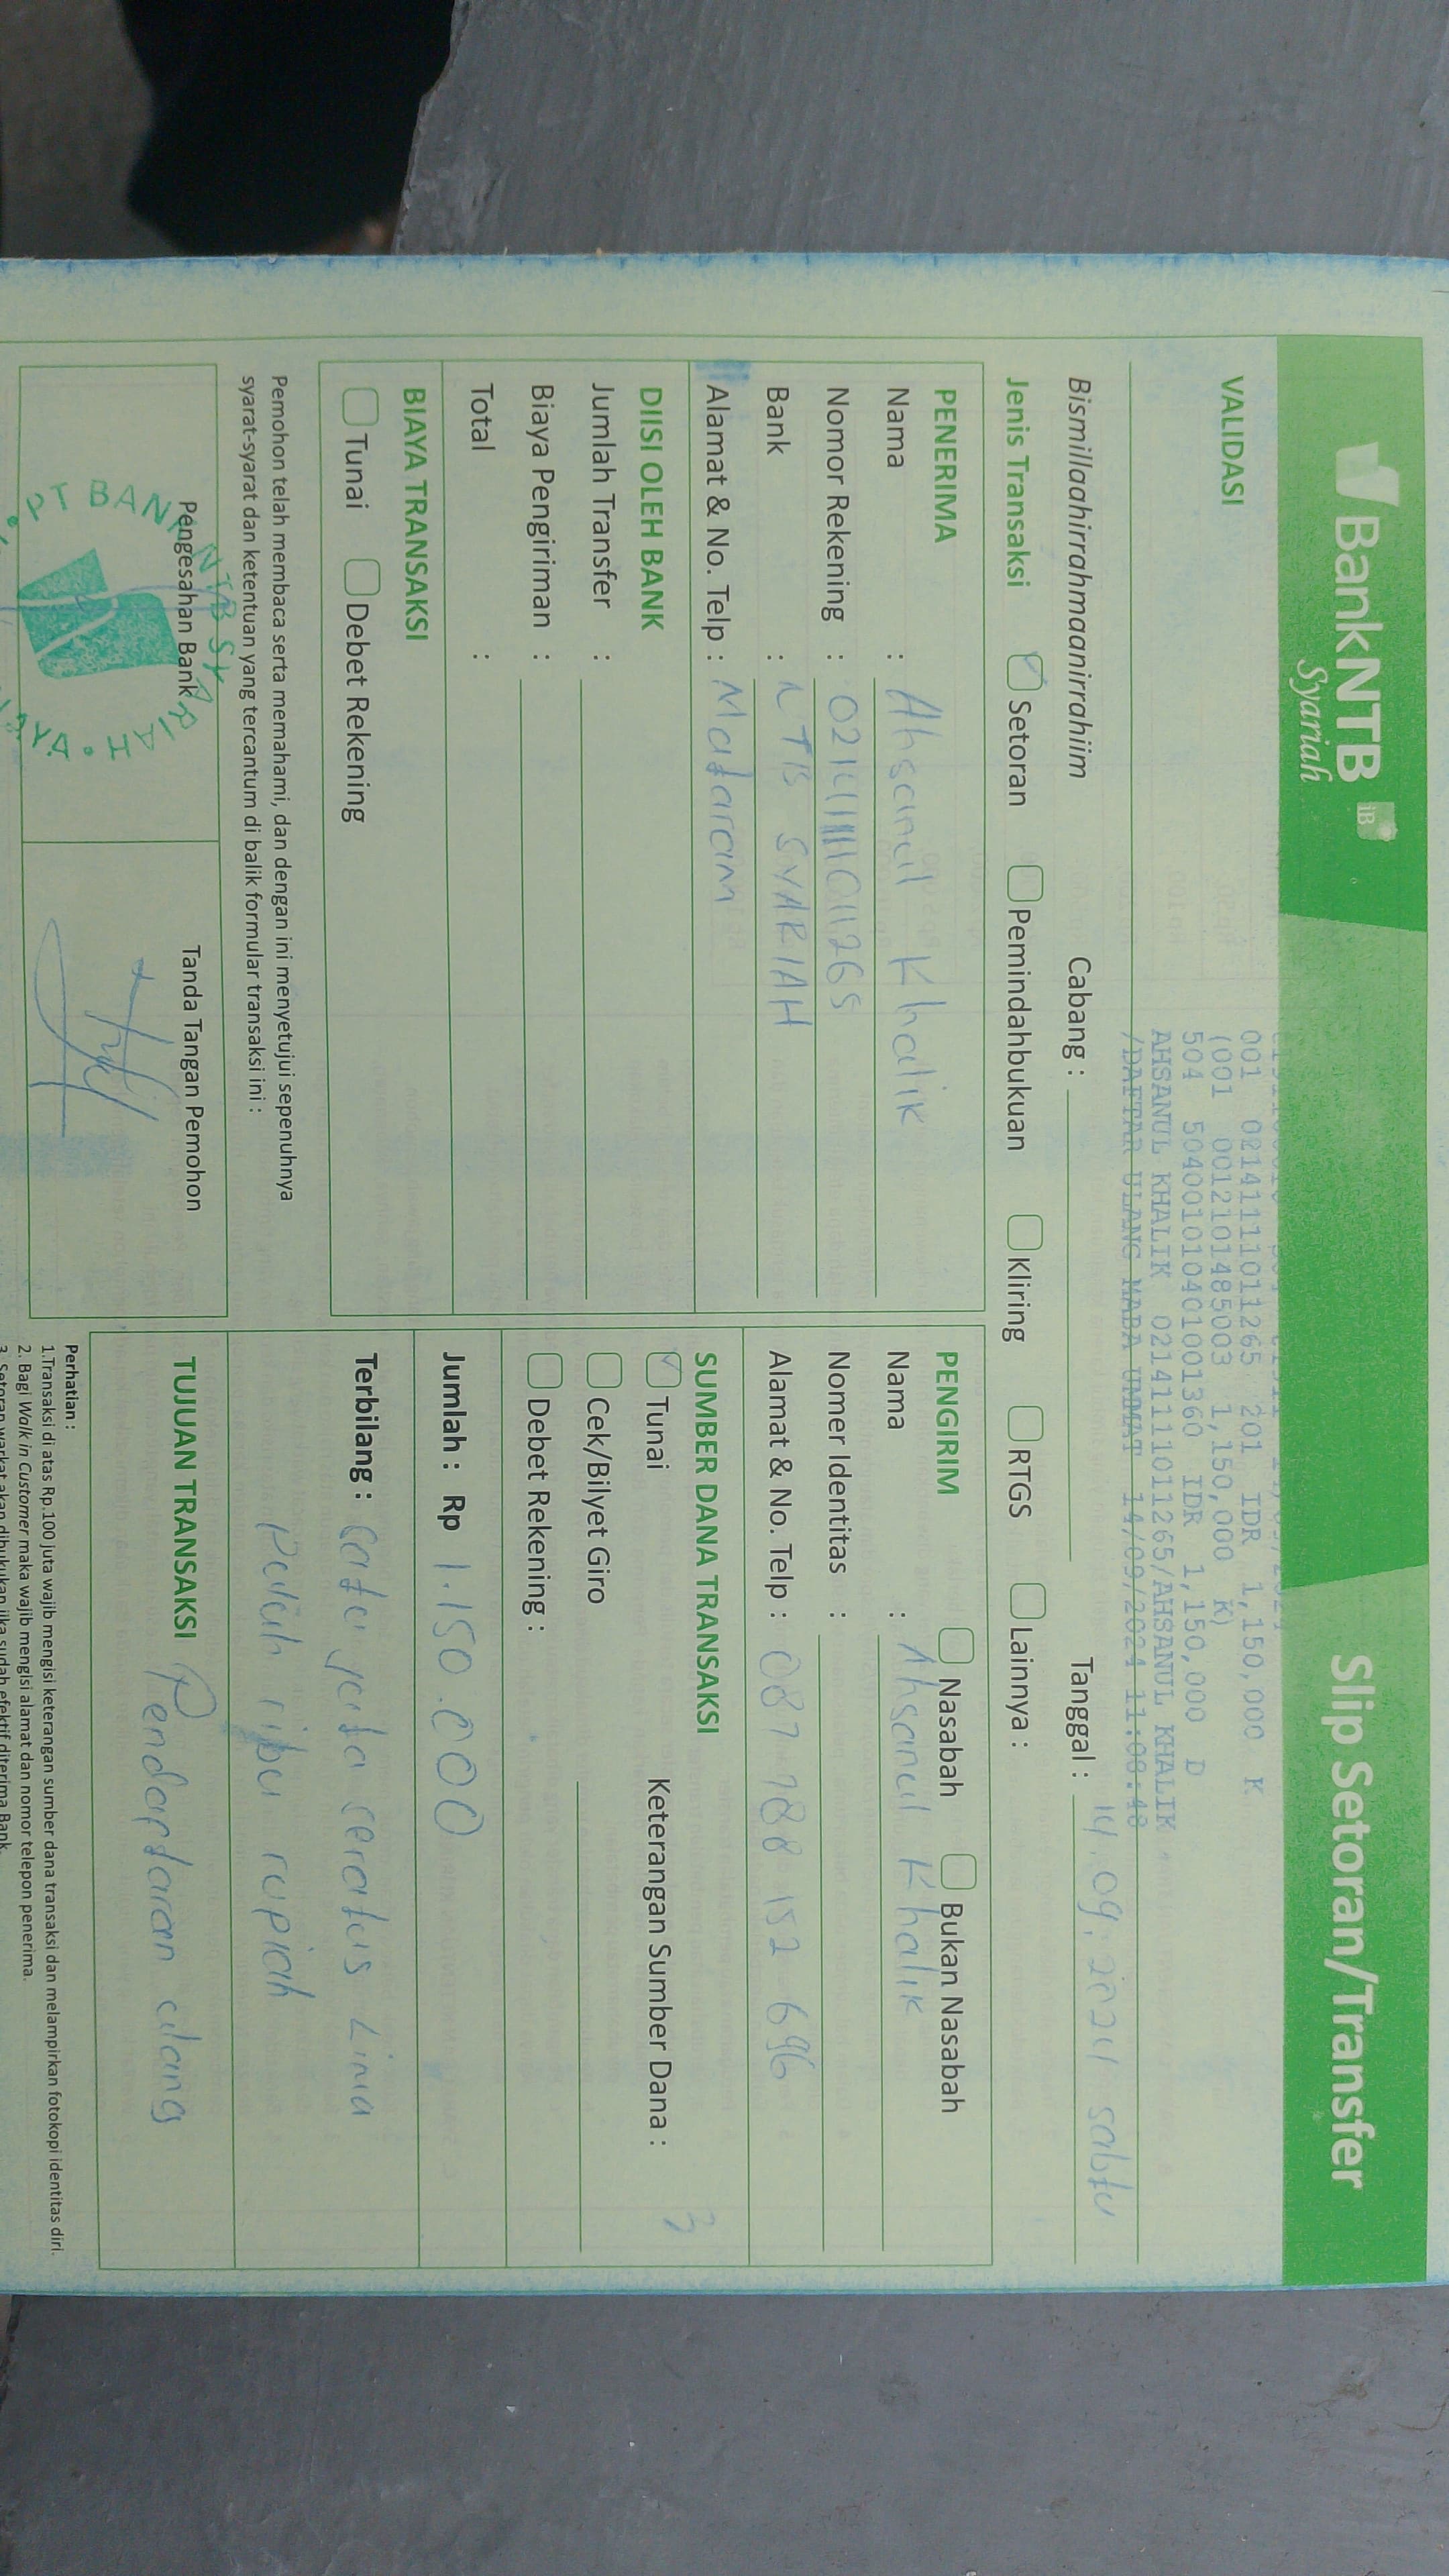 BankNTB iB
Syariah
Slip Setoran/Transfer
VALIDASI
001 0214111101101265 201 IDR 1,150,000 K
(001 0012101485003 1,150,000 K)
504 504001010401001360 IDR 1,150,000 D
AHSANUL KHALIK 0214111101101265/AHSANUL KHALIK
/DAFTAR ULANG MABA UMMAT 14/09/2024 11:08:48
Bismillaahirrahmaanirrahiim
Cabang :
Tanggal : 14.09.2024 sabtu
Jenis Transaksi Setoran Pemindahbukuan Kliring RTGS Lainnya :
PENERIMA
Nama : Ahsanul Khalik
Nomor Rekening :
Bank : NTB SYARIAH
Alamat & No. Telp : Mataram
DIISI OLEH BANK
Jumlah Transfer :
Biaya Pengiriman :
Total :
BIAYA TRANSAKSI
Tunai Debet Rekening
Pemohon telah membaca serta memahami, dan dengan ini menyetujui sepenuhnya
syarat-syarat dan ketentuan yang tercantum di balik formular transaksi ini :
Pengesahan Bank
PT BANK NTB SYARIAH
Tanda Tangan Pemohon
PENGIRIM Nasabah Bukan Nasabah
Nama : Ahsanul Khalik
Nomer Identitas :
Alamat & No. Telp : 087 788 152 696
SUMBER DANA TRANSAKSI
Tunai Keterangan Sumber Dana :
Cek/Bilyet Giro
Debet Rekening :
Jumlah : Rp 1.150.000
Terbilang : Satu juta seratus Lima
puluh ribu rupiah
TUJUAN TRANSAKSI Pendaftaran ulang
Perhatian :
1.Transaksi di atas Rp.100 juta wajib mengisi keterangan sumber dana transaksi dan melampirkan fotokopi identitas diri.
2. Bagi Walk in Customer maka wajib mengisi alamat dan nomor telepon penerima.
3. Setoran warkat akan dibukukan jika sudah efektif diterima Bank.